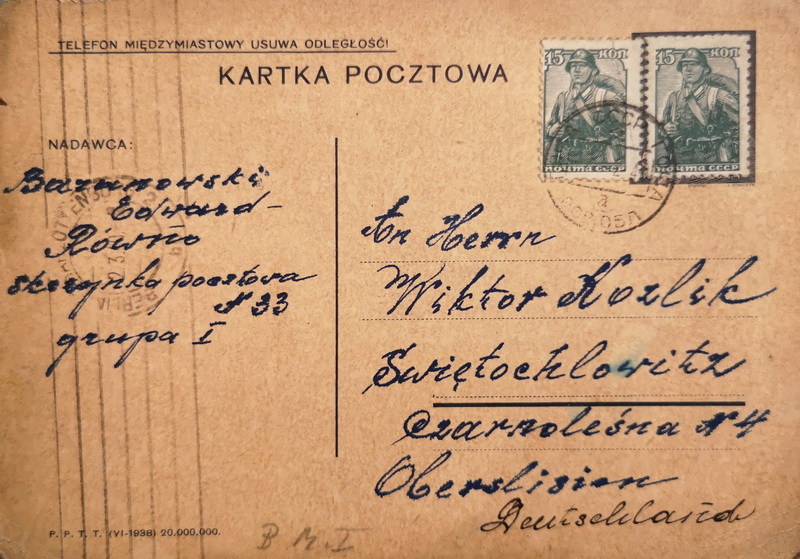 TELEFON MIĘDZYMIASTOWY USUWA ODLEGŁOŚĆ!
KARTKA POCZTOWA
15 КОП
ПОЧТА СССР
15 КОП
ПОЧТА СССР
NADAWCA:
Baranowski
Edward
Równo
skrzynka pocztowa
N 33
grupa I
An Herrn
Wiktor Kozlik
Świętochlowitz
Czarnoleśna N 4
Oberslisien
Deutschland
P. P. T. T. (VI-1938) 20.000.000.
B M I